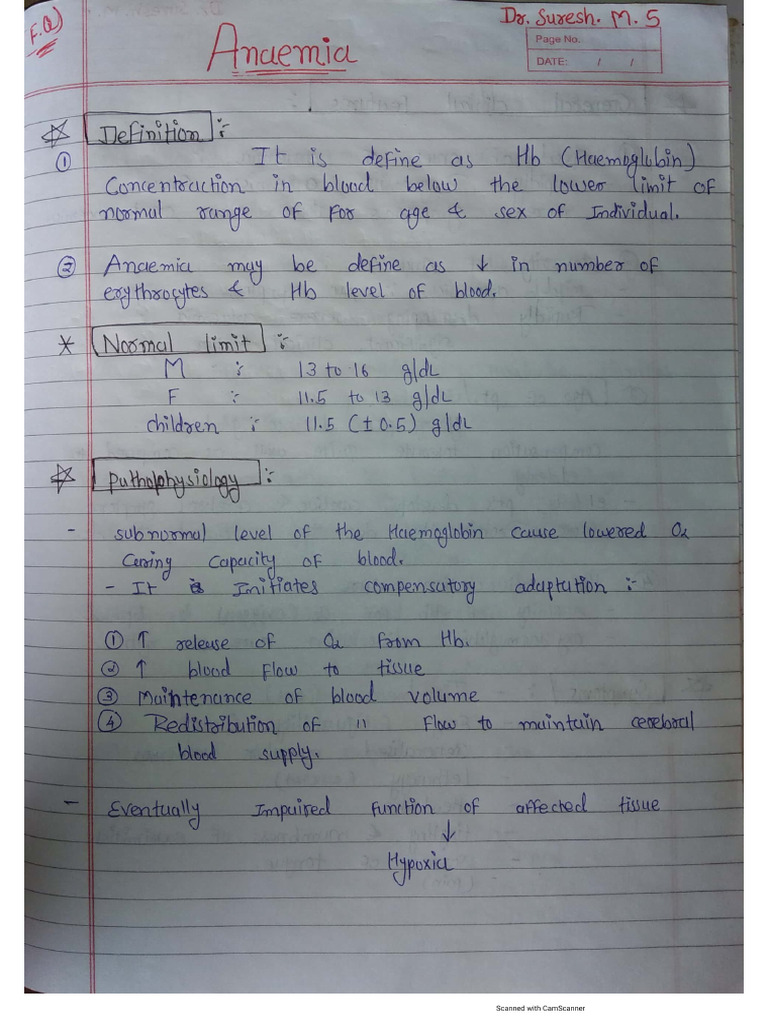 F.Q)
Dr. Suresh. M. S
Anaemia
Page No.
DATE: / /
☆ Definition :-
① It is define as Hb (Haemoglubin)
Concentraction in blood below the lower limit of
normal range of For age & sex of Individual.
② Anaemia may be define as ↓ in number of
erythrocytes & Hb level of blood.
* Normal limit :-
M :- 13 to 16 g/dL
F :- 11.5 to 13 g/dL
children :- 11.5 (± 0.5) g/dL
☆ Puthophysiology :-
- subnormal level of the Haemoglobin cause lowered O2
Cerring Capacity of blood.
- It Initiates compensatory adaptation :-
① ↑ release of O2 from Hb.
② ↑ blood flow to tissue
③ Maintenance of blood volume
④ Redistribution of 〃 flow to maintain cerebral
blood supply.
- Eventually Impaired function of affected tissue
↓
Hypoxia
Scanned with CamScanner